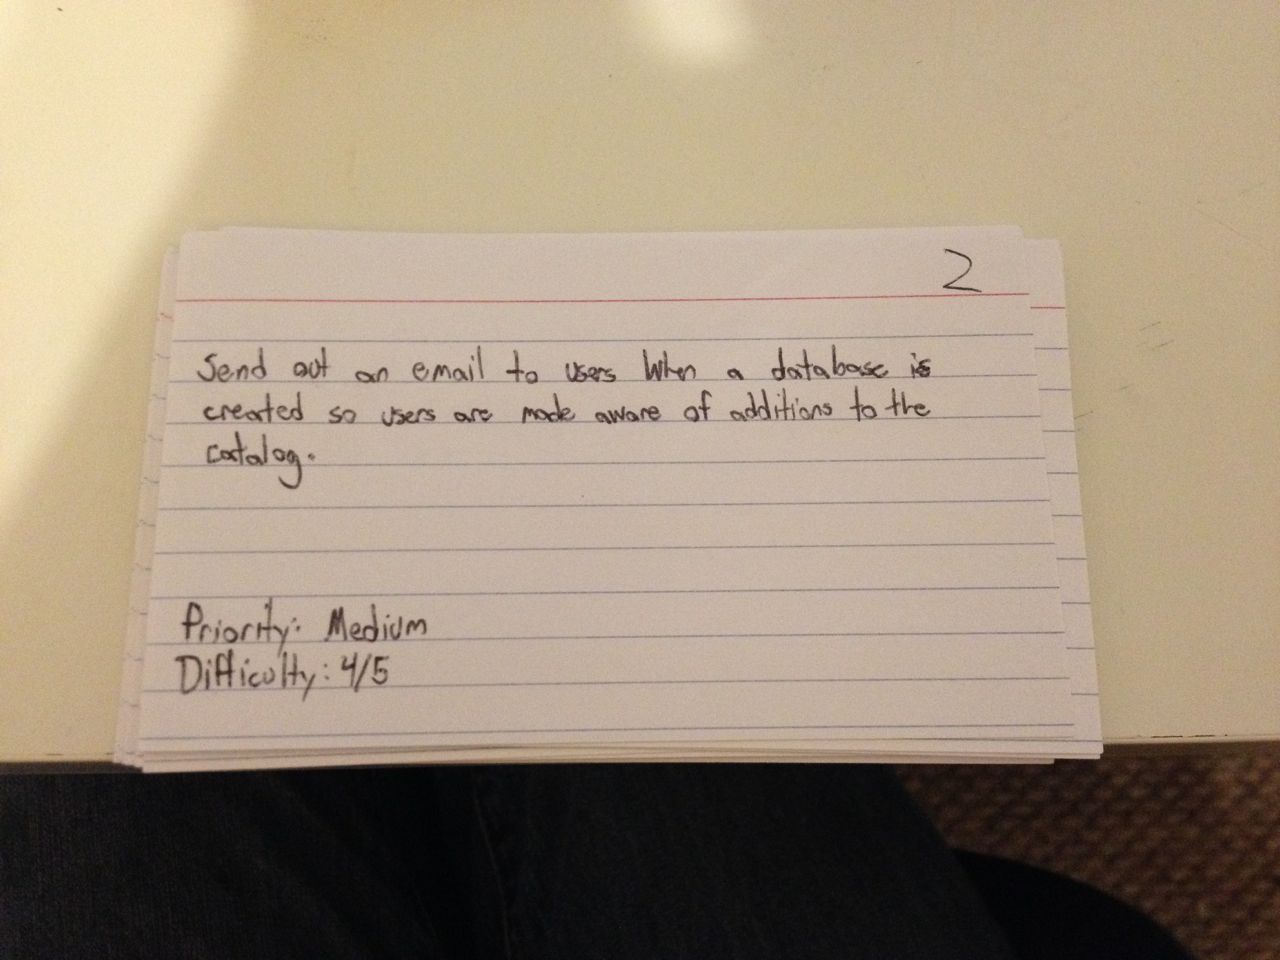 2
Send out an email to users when a database is
created so users are made aware of additions to the
catalog.
Priority: Medium
Difficulty: 4/5